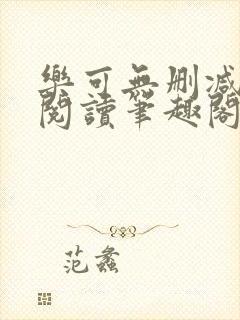 樂可無刪減
閱讀筆趣閣
范蠡